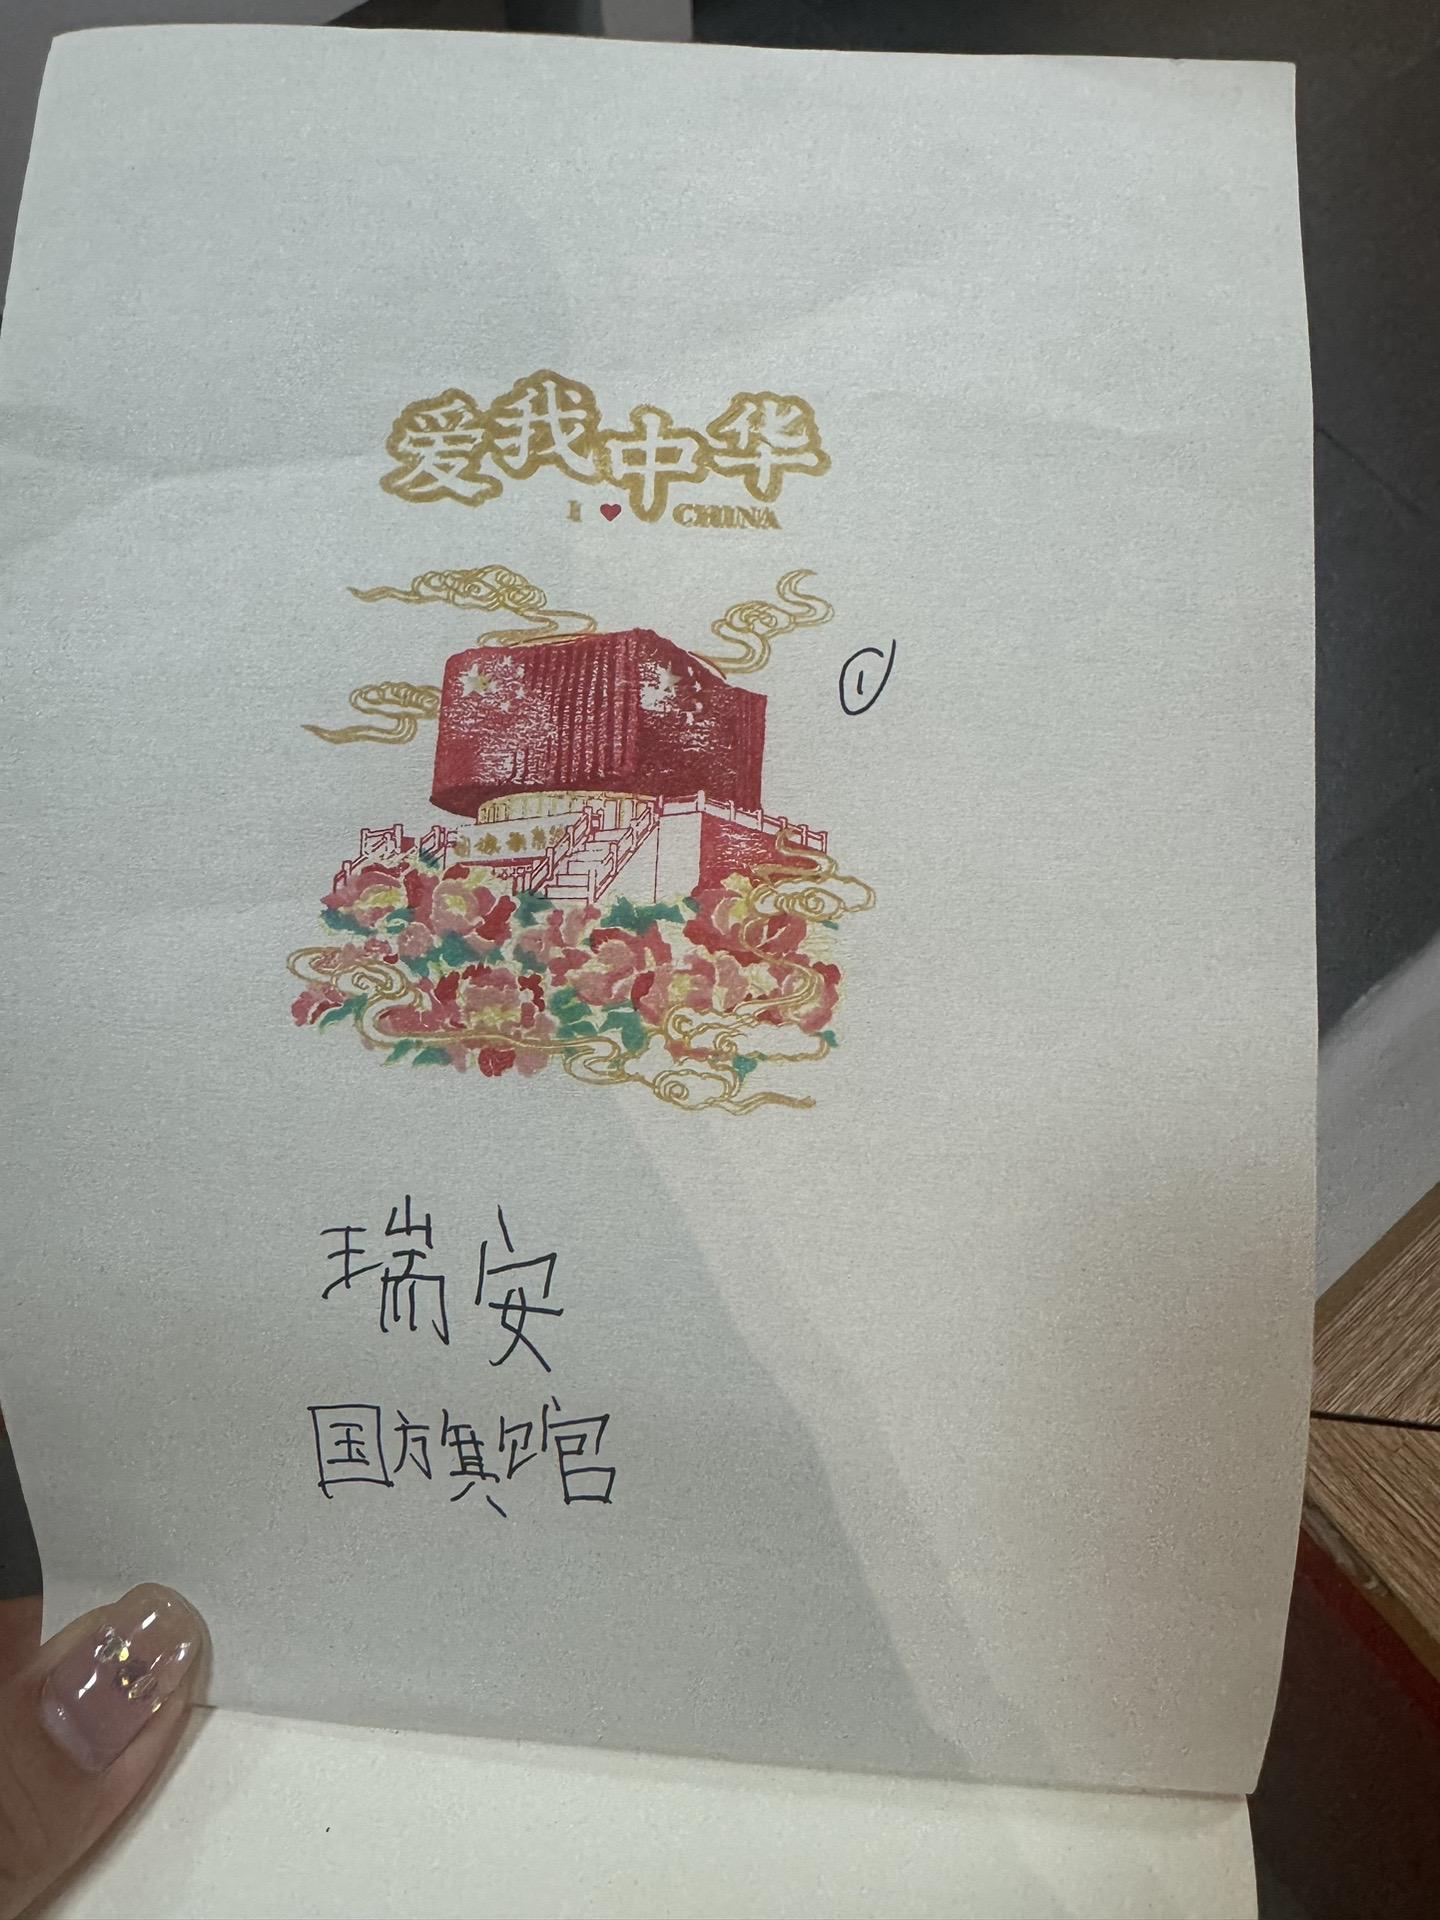 爱我中华
I ♥ CHINA
①
瑞安
国旗馆